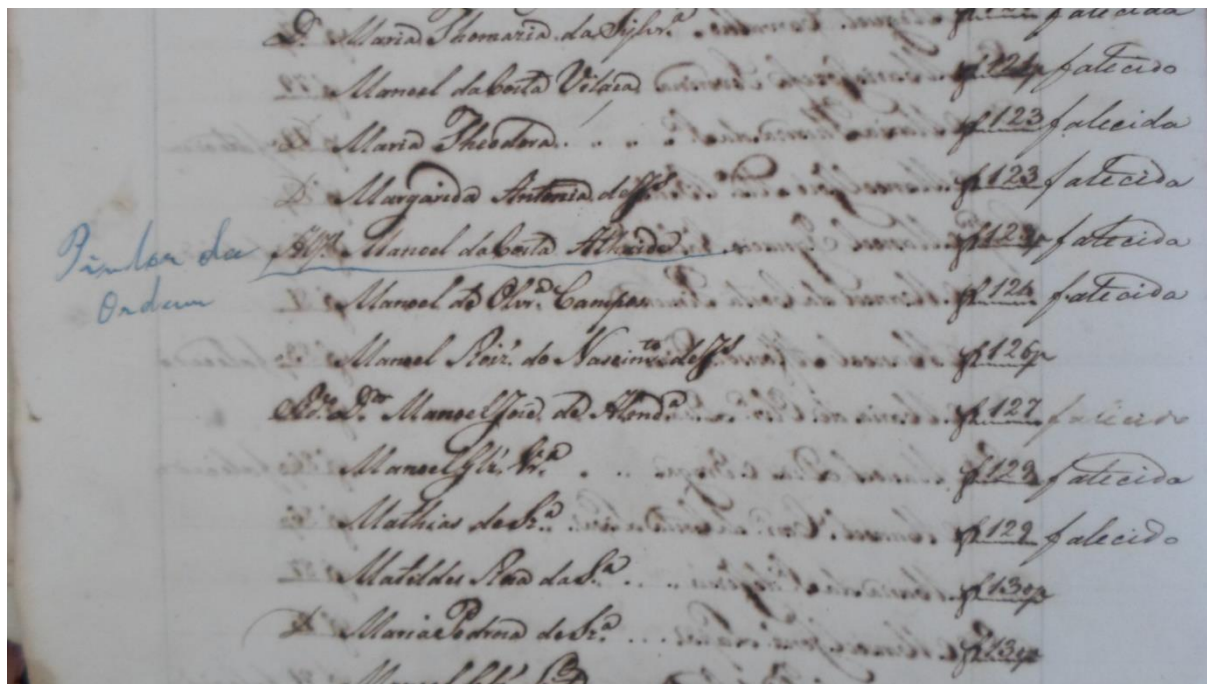 D. Maria Thomazia da Sylvª falecida
Manoel da Costa Vilaça f 121 falecido
Maria Theodora f 123 falecida
D. Margarida Antonia de f 123 falecida
Pintor da Ordem Alfs Manoel da Costa Athaide f 123 falecido
Manoel de Olivrª Campos f 124 falecido
Manoel Roiz. do Nascimto de f 126
Rdo Dr Manoel José de Almdª f 127 falecido
Manoel Glz. Vrª f 129 falecido
Mathias de f 129 falecido
Matildes Roza da Sª f 130
D. Maria Pedroza de f 130
Manoel